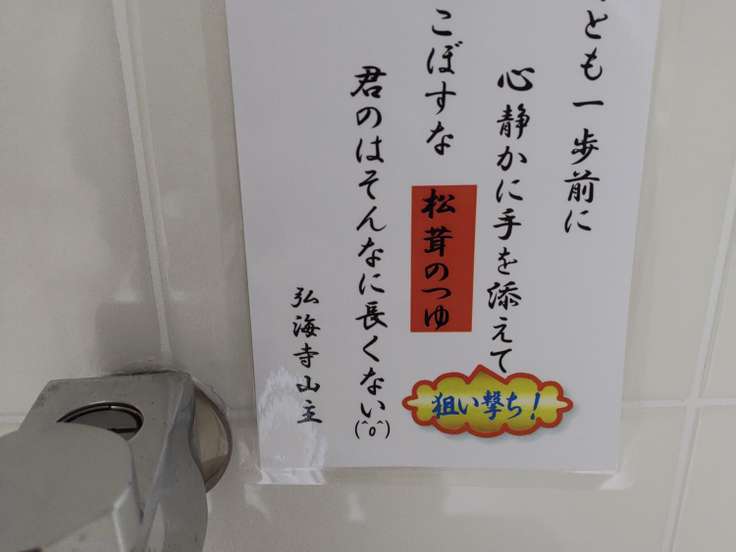 とも一歩前に
心静かに手を添えて
狙い撃ち！
こぼすな 松茸のつゆ
君のはそんなに長くない(^o^)
弘海寺山主